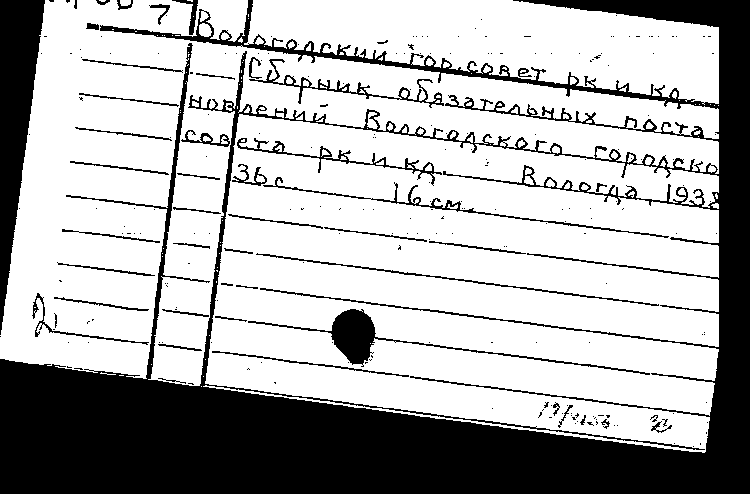 7
Вологодский гор.совет рк и кд
Сборник обязательных поста-
новлений Вологодского городско
совета рк и кд. Вологда, 1938
36 с. 16 см.